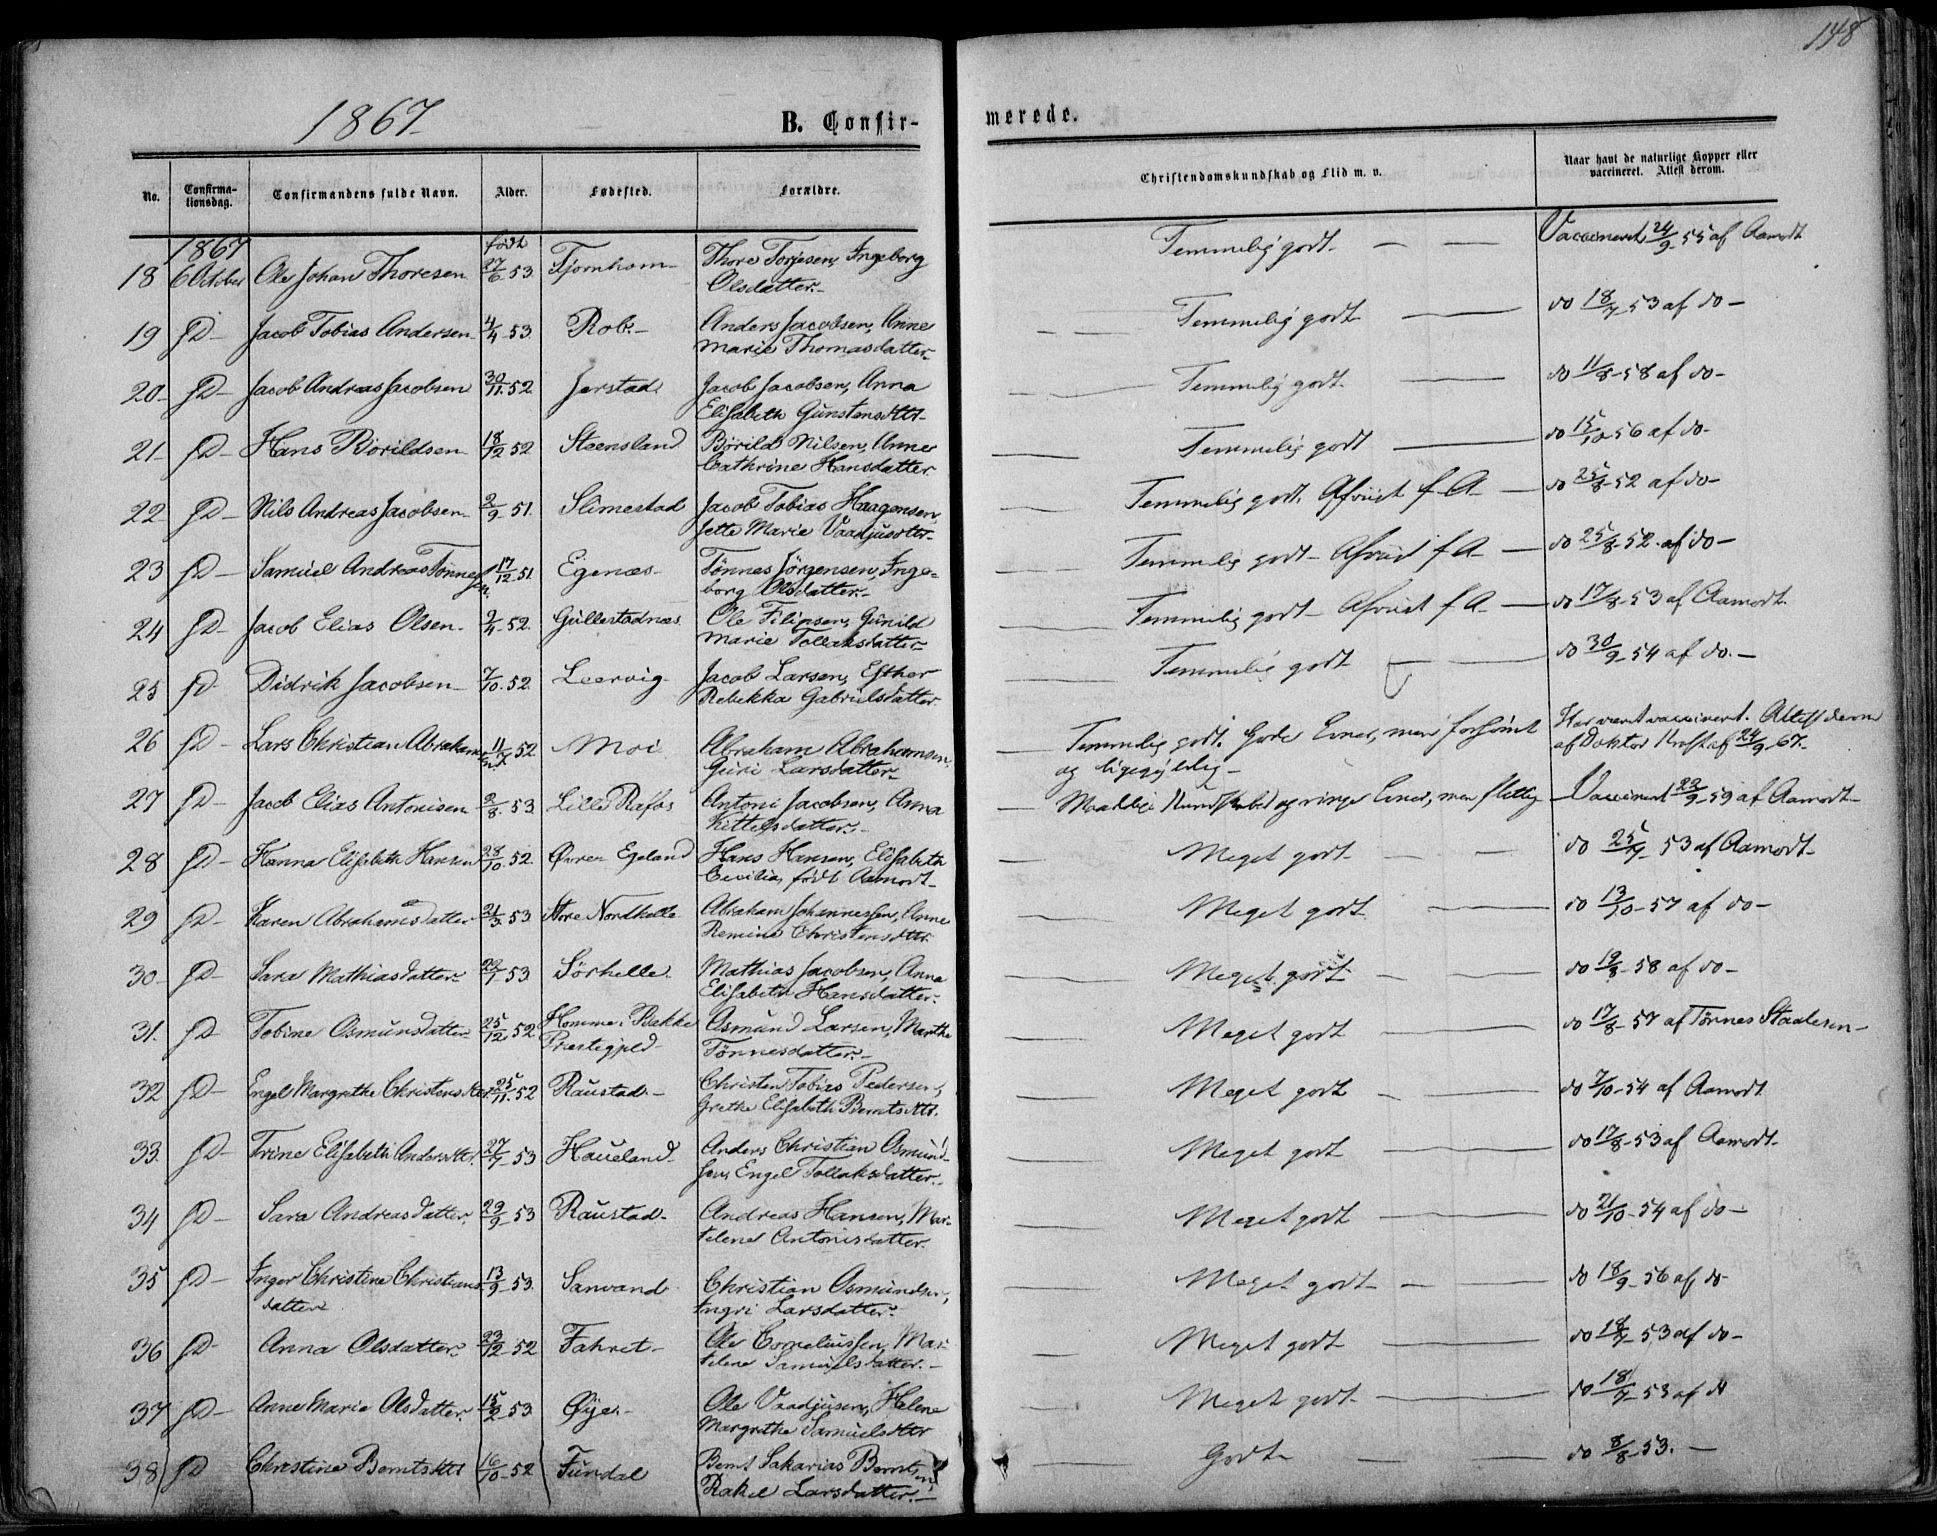 148
1867
B. Confir-
merede.
No.
Confirma-
tionsdag.
Confirmandens fulde Navn.
Alder.
Fødested.
Forældre.
Christendomskundskab og Flid m. v.
Naar havt de naturlige Kopper eller
vaccineret. Attest derom.
1867 født
18 6 October Ole Johan Thoresen 27/6 53 Tjornhom Thore Torjesen, Ingeborg
Olsdatter.
Temmelig godt. Vaccineret 24/9 55 af Aamodt
19 D Jacob Tobias Andersen 4/4 53. Rob. Anders Jacobsen, Anne
Marie Thomasdatter
Temmelig godt do 18/7 53 af do
20 D Jacob Andreas Jacobsen 30/11 52. Jerstad Jacob Jacobsen, Anna
Elisabeth Gunstensdttr
Temmelig godt. do 11/8 58 af do
21 D Hans Børildsen 18/12 52 Steensland Børild Nilsen, Anne
Cathrine Hansdatter
Temmelig godt do 15/10 56 af do
22 D Nils Andreas Jacobsen 2/9 51. Slimestad Jacob Tobias Haagensen,
Jette Marie Vaadjusdttr
Temmelig godt. Afviist f. A. do 25/8 52 af do
23 D Samuel Andreas Tønnes
sen. 17/12 51 Egenæs Tønnes Jørgensen, Inge-
borg Olsdatter.
Temmelig godt Afviist f. A. do 25/8 52. af do
24 D Jacob Elias Olsen. 2/4 52. Gullestadnæs. Ole Filipsen, Gunild
Marie Tollaksdatter
Temmelig godt Afviist f. A. do 17/8 53 af Aamodt.
25 D Didrik Jacobsen 7/10 52. Leervig Jacob Larsen, Esther
Rebekka Gabrielsdatter
Temmelig godt do 30/9 54 af do.
26 D Lars Christian Abraham
sen 11/7 52. Moi Abraham Abrahamsen,
Guri Larsdatter
Temmelig godt. Gode Evner, men forsømt
og ligegyldig
Har været vaccineret. Attest derom
af Doktor Kraft af 24/9 67.
27 D Jacob Elias Antonisen 2/8 53. Lille Rafos Antoni Jacobsen, Anna
Kittelsdatter.
Maadelige Kundskaber og ringe Evner, men flittig Vaccineret 22/9 59 af Aamodt
28 D Hanna Elisabeth Hansen 28/10 52. Øvre Egeland Hans Hansen, Elisabeth
Cecilia, født Aamodt
Meget godt do 25/7 53 af Aamodt
29 D Karen Abrahamsdatter 21/3 53 Store Nordhelle Abraham Johannessen, Anne
Remine Christensdttr.
Meget godt do 13/10 57 af do
30 D Sara Mathiasdatter 29/1 53 Sørhelle. Mathias Jacobsen, Anna
Elisabeth Hansdatter.
Meget godt do 19/8 58 af do
31. D Tobine Osmundsdatter 25/12 52 Homme i Bakke
Prestegjeld Osmund Larsen, Marthe
Tønnesdatter.
Meget godt do 17/8 57 af Tønnes Staalesen
32 D Engel Margrethe Christensdtter 25/11 52 Raustad Christen Tobias Pedersen,
Grethe Elisabeth Berntsdttr.
Meget godt do 7/10 54 af Aamodt
33. D Trine Elisabeth Andersdttr. 27/7 53 Haueland Anders Christian Osmund-
sen, Engel Tollaksdatter.
Meget godt do 17/8 53 af Aamodt
34 D Sara Andreasdatter 29/9 53 Raustad Andreas Hansen, Mar-
telene Antonisdatter
Meget godt do 21/10 54 af do
35 D Inger Christine Christians
datter 13/9 53. Sanvand Christian Osmundsen,
Ingri Larsdatter.
Meget godt do 18/9 56 af do
36 D Anna Olsdatter 23/12 52 Fahret Ole Corneliussen, Mar-
telene Samuelsdatter.
Meget godt do 18/7 53 af do
37 D Anne Marie Olsdatter 15/2 53. Øye Ole Vaadjusen, Helene
Margrethe Samuelsdttr
Meget godt do 18/7 53 af do
38 D Christine Berntsdttr 16/10 52 Fundal Bernt Sakarias Berntsen,
Rakel Larsdatter.
Godt do 8/8 53.